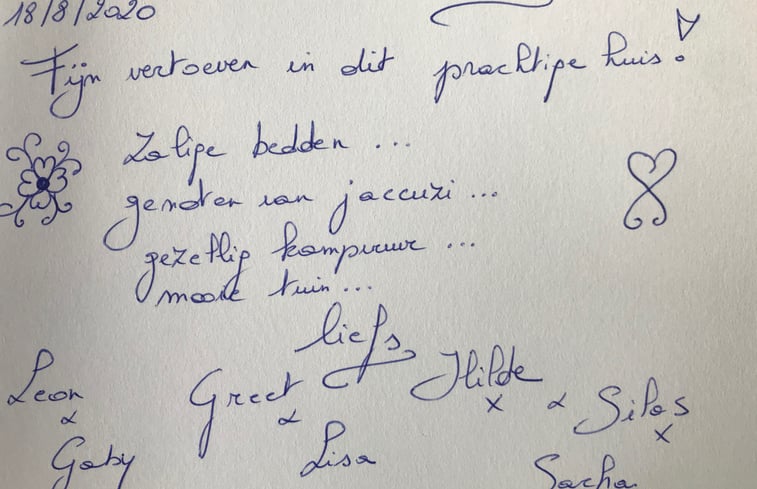 18/8/2020
Fijn vertoeven in dit prachtige huis!
Zalige bedden ...
genoten van jaccuzi ...
gezellig kampvuur ...
mooie tuin ...
liefs,
Leon Greet Hilde & Silas
& & x x
Gaby Lisa Sacha